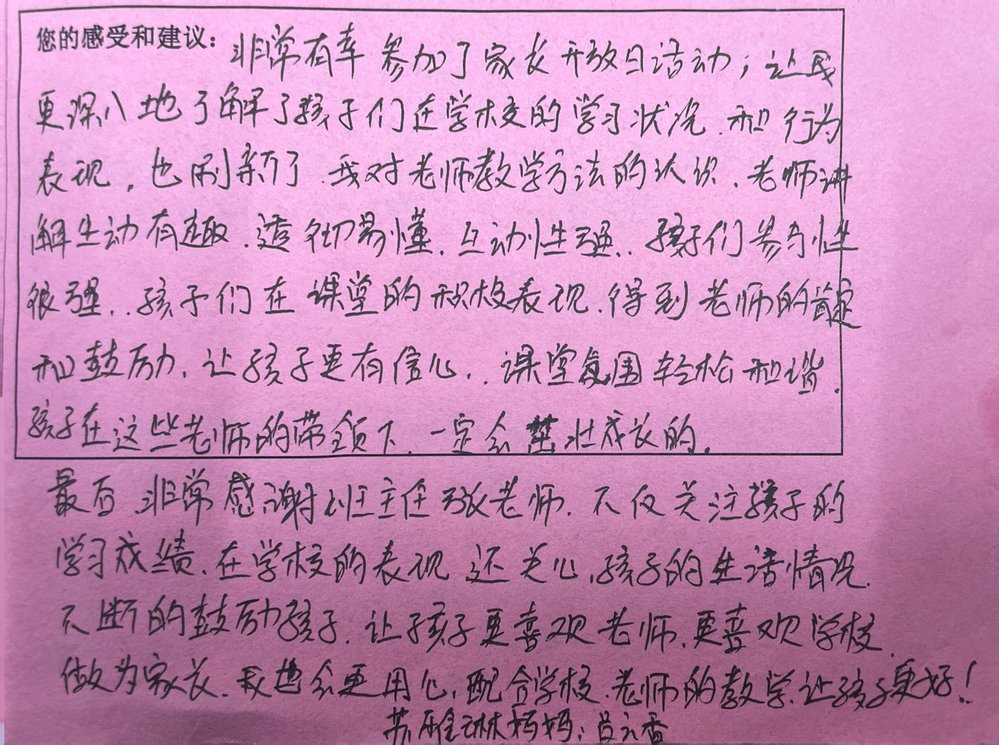 您的感受和建议：非常有幸参加了家长开放日活动；让我
更深入地了解了孩子们在学校的学习状况.和行为
表现，也刷新了.我对老师教学方法的认识.老师讲
解生动有趣.透彻易懂.互动性强..孩子们参与性
很强..孩子们在课堂的积极表现.得到老师的肯定
和鼓励.让孩子更有信心..课堂氛围轻松和谐.
孩子在这些老师的带领下.一定会茁壮成长的.
最后.非常感谢班主任张老师.不仅关注孩子的
学习成绩.在学校的表现.还关心.孩子的生活情况.
不断的鼓励孩子.让孩子更喜欢老师.更喜欢学校.
做为家长.我也会更用心.配合学校.老师的教学.让孩子更好！
苏雅琳妈妈：吕云香